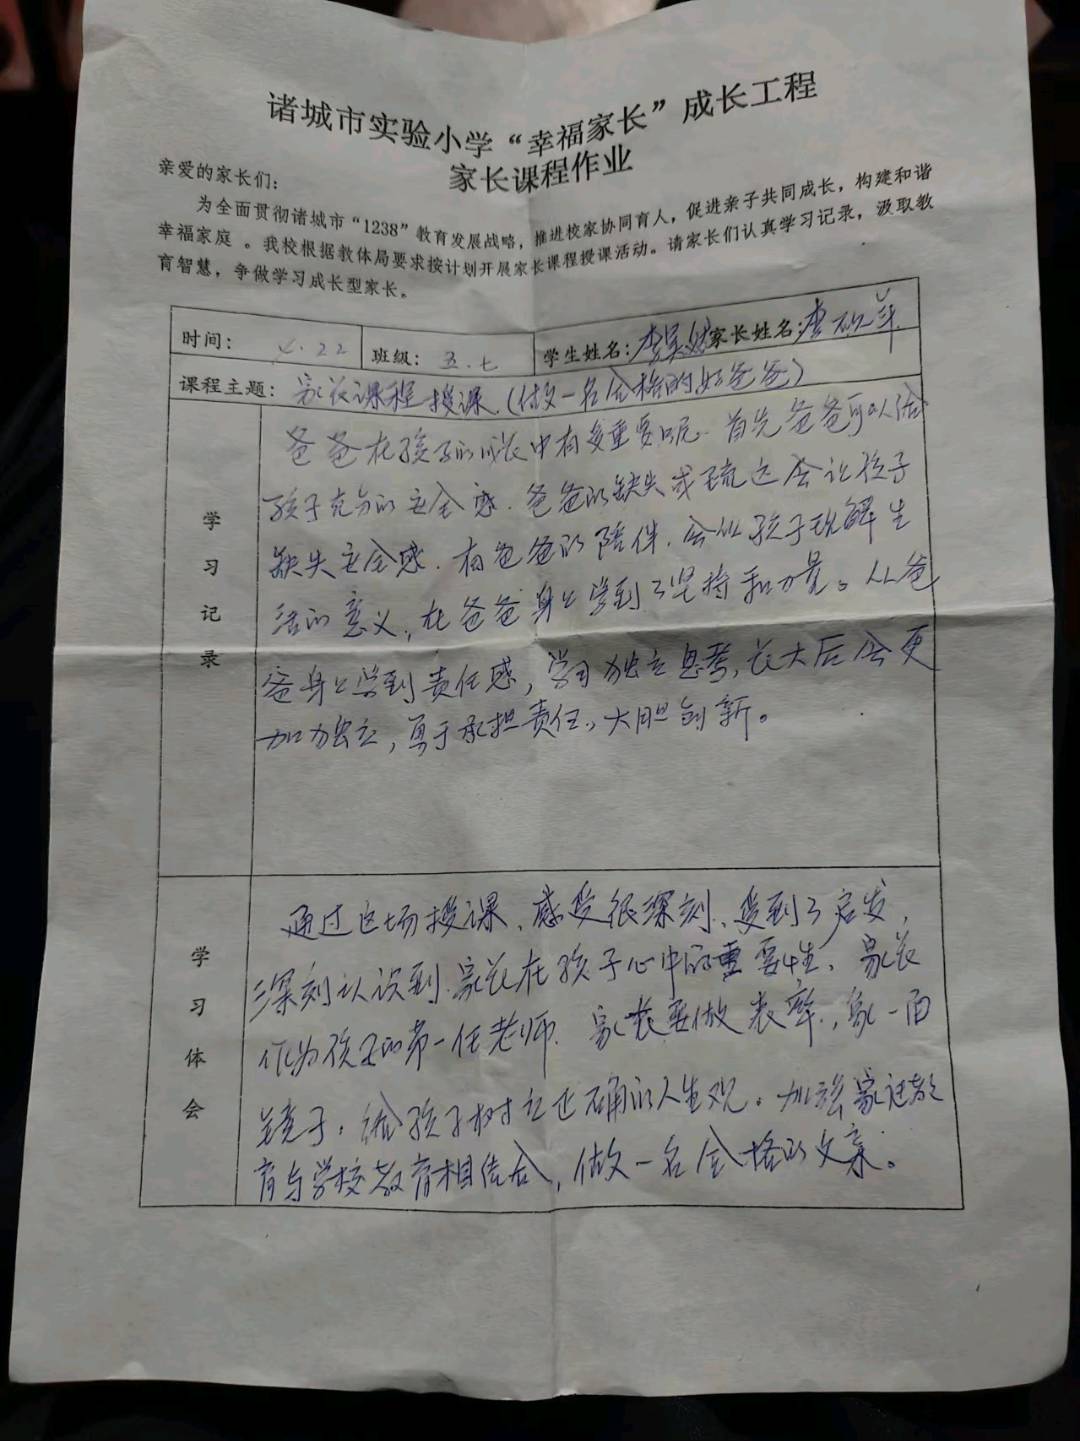 诸城市实验小学“幸福家长”成长工程
家长课程作业
亲爱的家长们：
为全面贯彻诸城市“1238”教育发展战略，推进校家协同育人，促进亲子共同成长，构建和谐
幸福家庭。我校根据教体局要求按计划开展家长课程授课活动。请家长们认真学习记录，汲取教
育智慧，争做学习成长型家长。
时间： 4.22 班级： 五.七 学生姓名：李昊 家长姓名：李
课程主题： 家长课程授课（做一名合格的好爸爸）
学习记录
爸爸在孩子的成长中有多重要呢.首先爸爸可以给
孩子充分的安全感.爸爸的缺失或疏远会让孩子
缺失安全感.有爸爸的陪伴.会让孩子理解生
活的意义，在爸爸身上学到了坚持和力量。从爸
爸身上学到责任感，学习独立思考，长大后会更
加独立，勇于承担责任，大胆创新。
学习体会
通过这场授课、感受很深刻、受到了启发，
深刻认识到.家长在孩子心中的重要性、家长
作为孩子的第一任老师.家长要做表率，象一面
镜子，给孩子树立正确的人生观。加强家庭教
育与学校教育相结合，做一名合格的父亲。